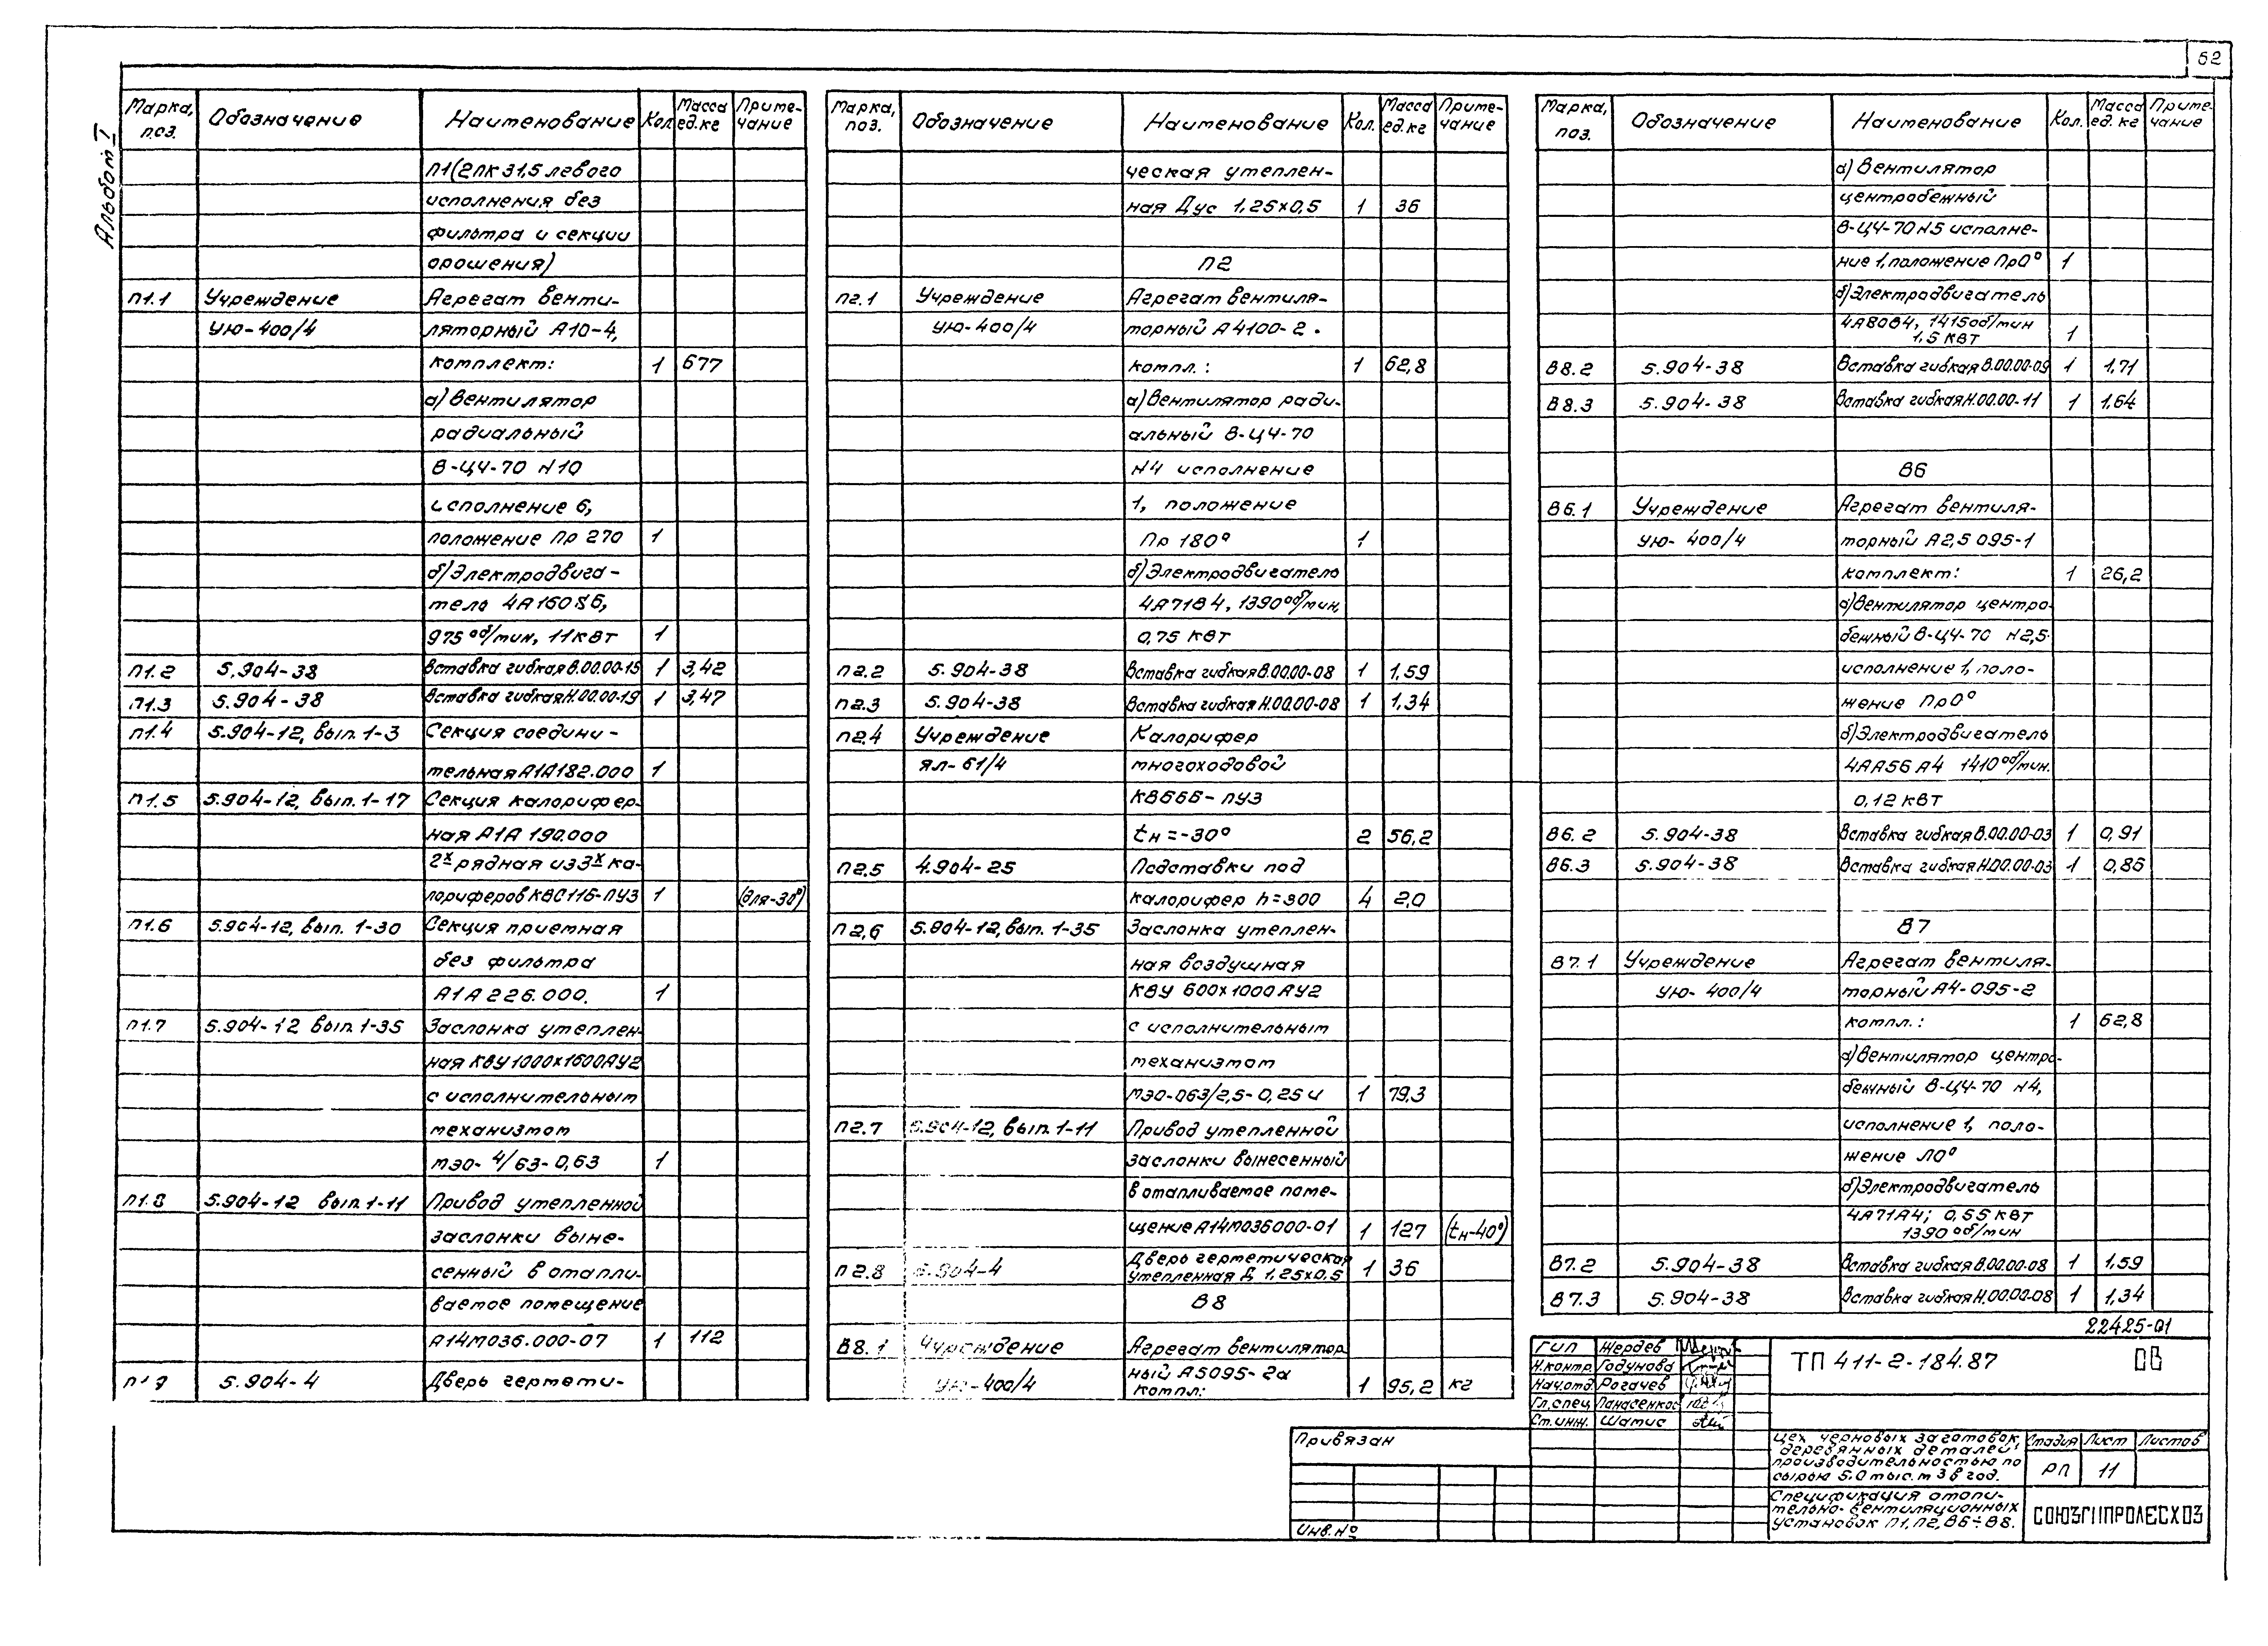 52
Альбом I
Марка, поз. Обозначение Наименование Кол. Масса ед.кг Примечание
П1(2ПК31,5 левого
исполнения без
фильтра и секции
орошения)
П1.1 Учреждение Агрегат венти-
УЮ-400/4 ляторный А10-4,
комплект: 1 677
а) Вентилятор
радиальный
В-Ц4-70 N10
исполнение 6,
положение Пр 270 1
б) Электродвига-
тель 4А160S6,
975 об/мин, 11 кВт 1
П1.2 5.904-38 Вставка гибкая В.00.00-15 1 3,42
П1.3 5.904-38 Вставка гибкая Н.00.00-19 1 3,47
П1.4 5.904-12, вып. 1-3 Секция соедини-
тельная А1А182.000 1
П1.5 5.904-12, вып. 1-17 Секция калорифер-
ная А1А 190.000
2х рядная из 3х ка-
лориферов КВС11Б-ПУ3 1 (для-30°)
П1.6 5.904-12, вып. 1-30 Секция приемная
без фильтра
А1А 226.000. 1
П1.7 5.904-12 вып. 1-35 Заслонка утеплен-
ная КВУ 1000х1600АУ2
с исполнительным
механизмом
МЭО-4/63-0,63 1
П1.8 5.904-12 вып. 1-11 Привод утепленной
заслонки выне-
сенный в отапли-
ваемое помещение
А14М036.000-07 1 112
П1 9 5.904-4 Дверь гермети-
Марка, поз. Обозначение Наименование Кол. Масса ед.кг Примечание
ческая утеплен-
ная Дус 1,25х0,5 1 36
П2
П2.1 Учреждение Агрегат вентиля-
УЮ-400/4 торный А4100-2.
компл.: 1 62,8
а) Вентилятор ради-
альный В-Ц4-70
N4 исполнение
1, положение
Пр 180° 1
б) Электродвигатель
4А71В4, 1390 об/мин,
0,75 кВт
П2.2 5.904-38 Вставка гибкая В.00.00-08 1 1,59
П2.3 5.904-38 Вставка гибкая Н.00.00-08 1 1,34
П2.4 Учреждение Калорифер
ЯЛ-61/4 многоходовой
КВБ6Б-ПУ3
tн=-30° 2 56,2
П2.5 4.904-25 Подставки под
калорифер h=300 4 2,0
П2,6 5.904-12, вып. 1-35 Заслонка утеплен-
ная воздушная
КВУ 600х1000АУ2
с исполнительным
механизмом
МЭО-063/2,5-0,25И 1 79,3
П2.7 5.904-12, вып. 1-11 Привод утепленной
заслонки вынесенный
в отапливаемое поме-
щение А14М036000-01 1 127 (tн-40°)
П2.8 5.904-4 Дверь герметическая
утепленная Д 1,25х0,5 1 36
В8
В8.1 Учреждение Агрегат вентилятор
УЮ-400/4 ный А5095-2а
компл: 1 95,2 кг
Марка, поз. Обозначение Наименование Кол. Масса ед.кг Примечание
а) Вентилятор
центробежный
В-Ц4-70 N5 исполне-
ние 1, положение Пр0° 1
б) Электродвигатель
4А80В4, 1415 об/мин
1,5 кВт 1
В8.2 5.904-38 Вставка гибкая В.00.00-09 1 1,71
В8.3 5.904-38 Вставка гибкая Н.00.00-11 1 1,64
В6
В6.1 Учреждение Агрегат вентиля-
УЮ-400/4 торный А2,5 095-1
комплект: 1 26,2
а) Вентилятор центро-
бежный В-Ц4-70 N2,5
исполнение 1, поло-
жение Пр0°
б) Электродвигатель
4АА56А4 1410 об/мин.
0,12 кВт
В6.2 5.904-38 Вставка гибкая В.00.00-03 1 0,91
В6.3 5.904-38 Вставка гибкая Н.00.00-03 1 0,86
В7
В7.1 Учреждение Агрегат вентиля-
УЮ-400/4 торный А4-095-2
компл.: 1 62,8
а) Вентилятор центро-
бежный В-Ц4-70 N4,
исполнение 1, поло-
жение Л0°
б) Электродвигатель
4А71А4; 0,55 кВт
1390 об/мин
В7.2 5.904-38 Вставка гибкая В.00.00-08 1 1,59
В7.3 5.904-38 Вставка гибкая Н.00.00-08 1 1,34
22425-01
ГИП Жердев
Н.контр. Годунова
Нач.отд. Рогачев
Гл.спец. Панасенко
Ст.инж. Шатис
ТП 411-2-184.87 ОВ
Привязан
Инв.№
Цех черновых заготовок
деревянных деталей
производительностью по
сырью 5.0 тыс. м3 в год.
Стадия Лист Листов
РП 11
Спецификация отопи-
тельно-вентиляционных
установок П1, П2, В6÷В8.
СОЮЗГИПРОЛЕСХОЗ